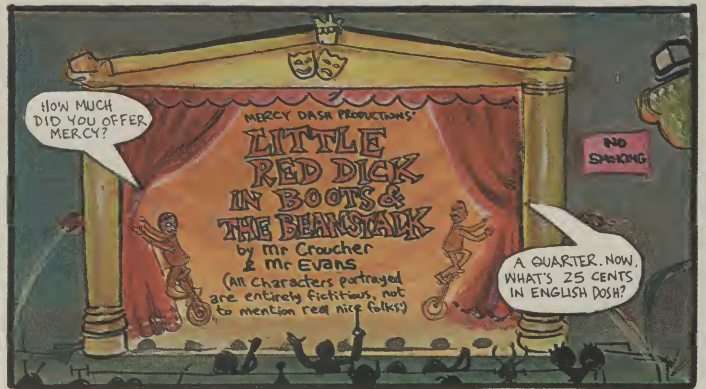 HOW MUCH
DID YOU OFFER
MERCY?
MERCY DASH PRODUCTIONS'
LITTLE
RED DICK
IN BOOTS &
THE BEANSTALK
by Mr Croucher
& Mr Evans
(All Characters portrayed
are entirely fictitious, not
to mention real nice folks)
NO
SMOKING
A QUARTER. NOW,
WHAT'S 25 CENTS
IN ENGLISH DOSH?